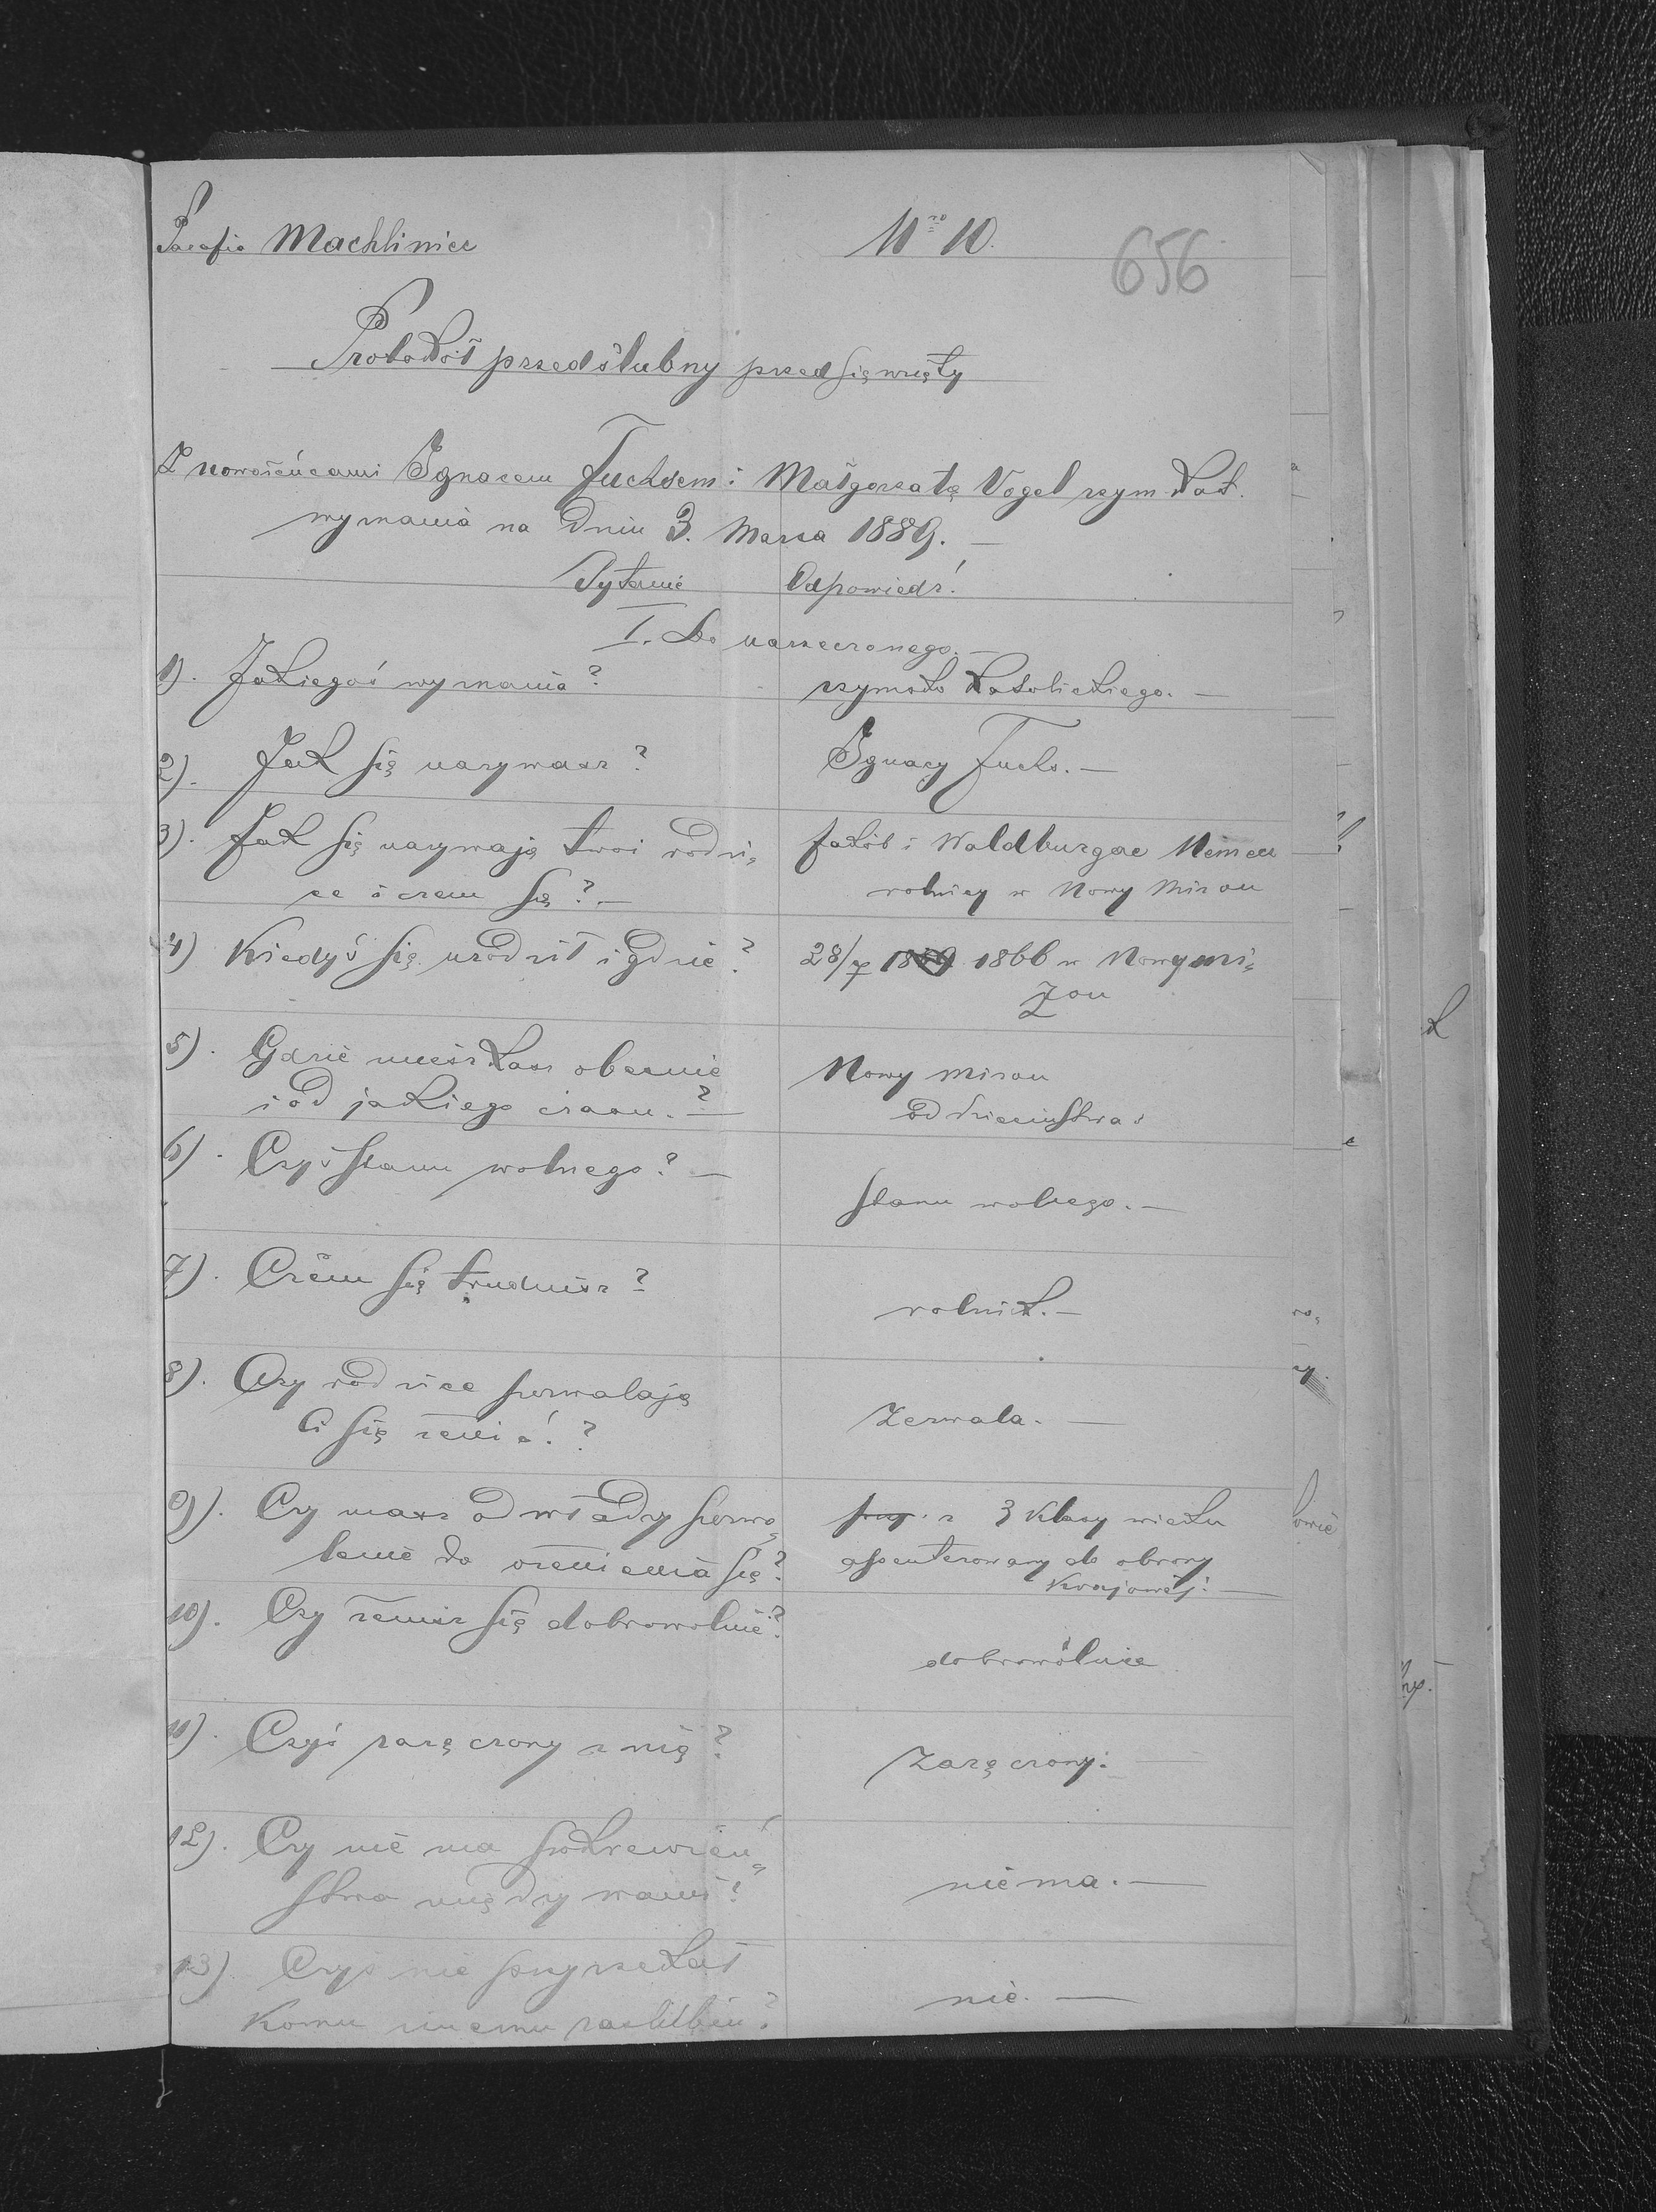 Parafia Machliniec Nro 10.
656
Protokół przedślubny przedsięwzięty
Z nowożeńcami Ignacem Fuchsem i Małgorzatą Vogel rzym. kat.
wyznania na dniu 3. Marca 1889. —
Pytanie Odpowiedź.
I. Do narzeczonego. —
1). Jakiegoś wyznania? rzymsko katolickiego. —
2). Jak się nazywasz? Ignacy Fuchs. —
3). Jak się nazywają twoi rodzi- Jakób i Waldburgae
ce i czem są? — rolnicy w Nowy Mizon
4) Kiedyś się urodził i gdzie? 1866 w Nowymi-
zon
5). Gdzie mieszkasz obecnie Nowy Mizon
i od jakiego czasu. ? — od dzieciństwa
6). Czyś stanu wolnego? — stanu wolnego. —
7). Czém się trudnisz? rolnik. —
8). Czy rodzice pozwalają Zezwala. —
Ci się żenić. ?
9). Czy masz od władzy pozwo- z 3 klasy wieku
lenie do ożenienia się? assenterowany do obrony
krajowéj. —
10). Czy żenisz się dobrowolnie? dobrowolnie
11). Czyś zaręczony z nią? Zaręczony. —
12). Czy nie ma pokrewień- nie ma. —
stwa między wami?
13) Czyś nie przyrzekał nie. —
komu innemu zaślubin?